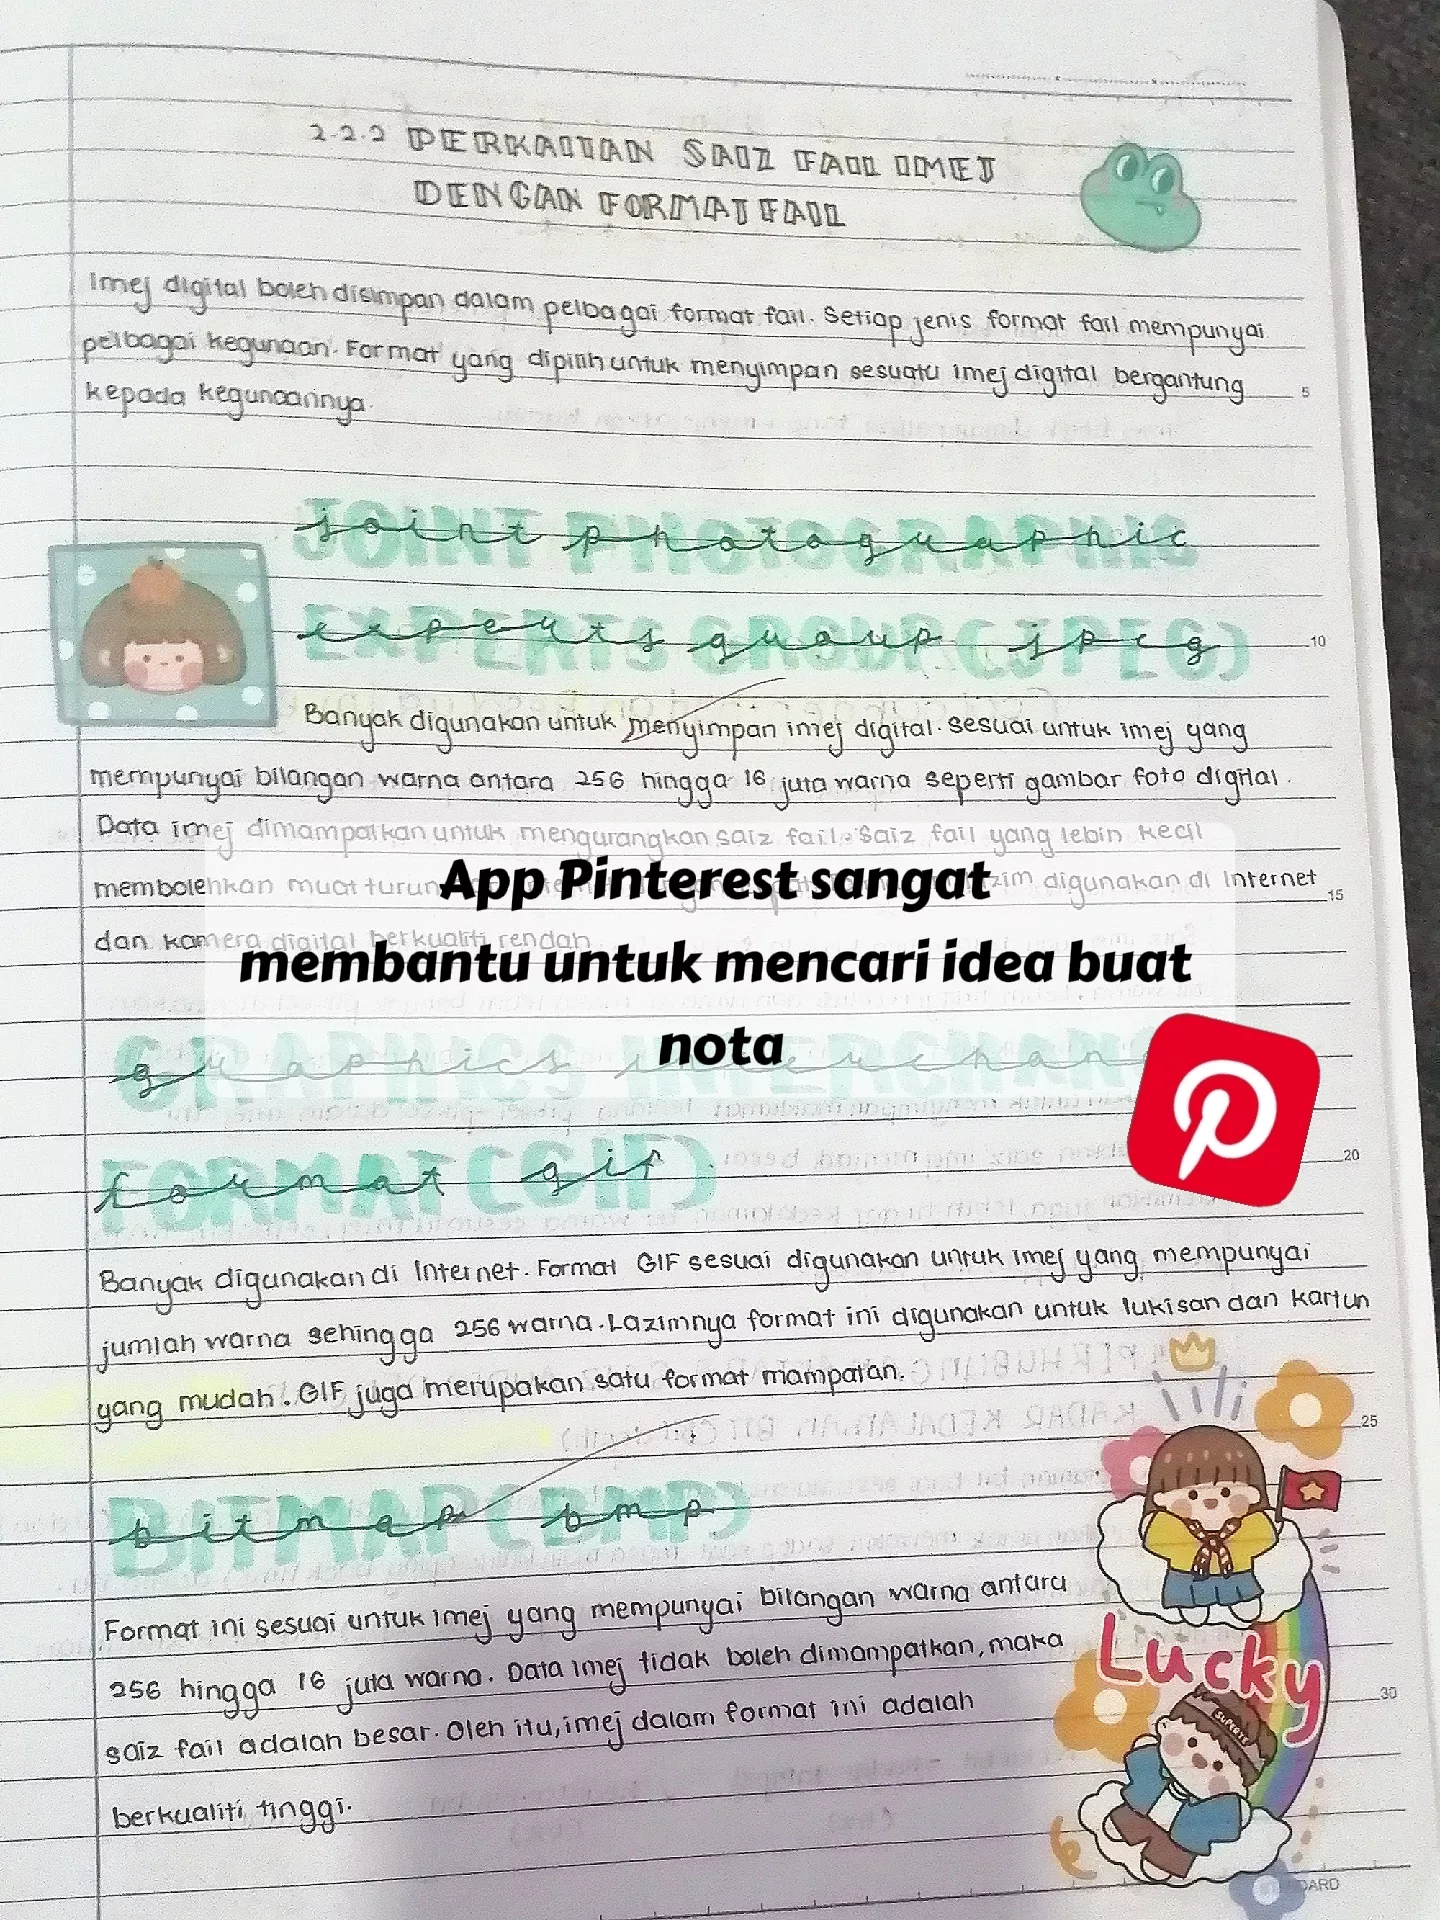 2.2.2 PERKAITAN SAIZ FAIL IMEJ
DENGAN FORMAT FAIL
Imej digital boleh disimpan dalam pelbagai format fail. Setiap jenis format fail mempunyai
pelbagai kegunaan. Format yang dipilih untuk menyimpan sesuatu imej digital bergantung
kepada kegunaannya.
5
JOINT PHOTOGRAPHIC
joint photographic
EXPERTS GROUP (JPEG)
experts group jpeg
10
Banyak digunakan untuk menyimpan imej digital. Sesuai untuk imej yang
mempunyai bilangan warna antara 256 hingga 16 juta warna seperti gambar foto digital.
Data imej dimampatkan untuk mengurangkan saiz fail. Saiz fail yang lebih kecil
membolehkan muat turun digunakan di Internet
15
dan kamera digital berkualiti rendah
App Pinterest sangat
membantu untuk mencari idea buat
nota
GRAPHICS
graphics
FORMAT (GIF)
format gif
20
Banyak digunakan di Internet. Format GIF sesuai digunakan untuk imej yang mempunyai
jumlah warna sehingga 256 warna. Lazimnya format ini digunakan untuk lukisan dan kartun
yang mudah. GIF juga merupakan satu format mampatan.
25
BITMAP (BMP)
bitmap bmp
Format ini sesuai untuk imej yang mempunyai bilangan warna antara
256 hingga 16 juta warna. Data imej tidak boleh dimampatkan, maka
saiz fail adalah besar. Oleh itu, imej dalam format ini adalah
berkualiti tinggi.
Lucky
30